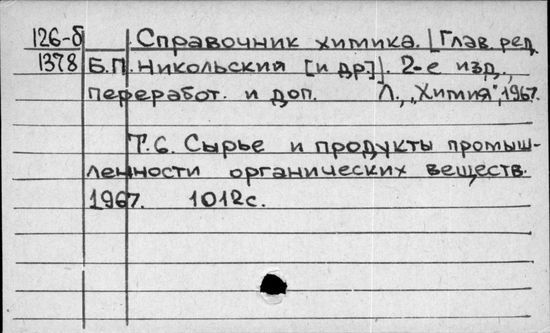 126-б Справочник химика. [Глав. ред.
1378 Б.П. Никольский [и др.]]. 2-е изд.,
переработ. и доп. Л., „Химия", 1967.
Т.6. Сырье и продукты промыш-
ленности органических веществ.
1967. 1012с.